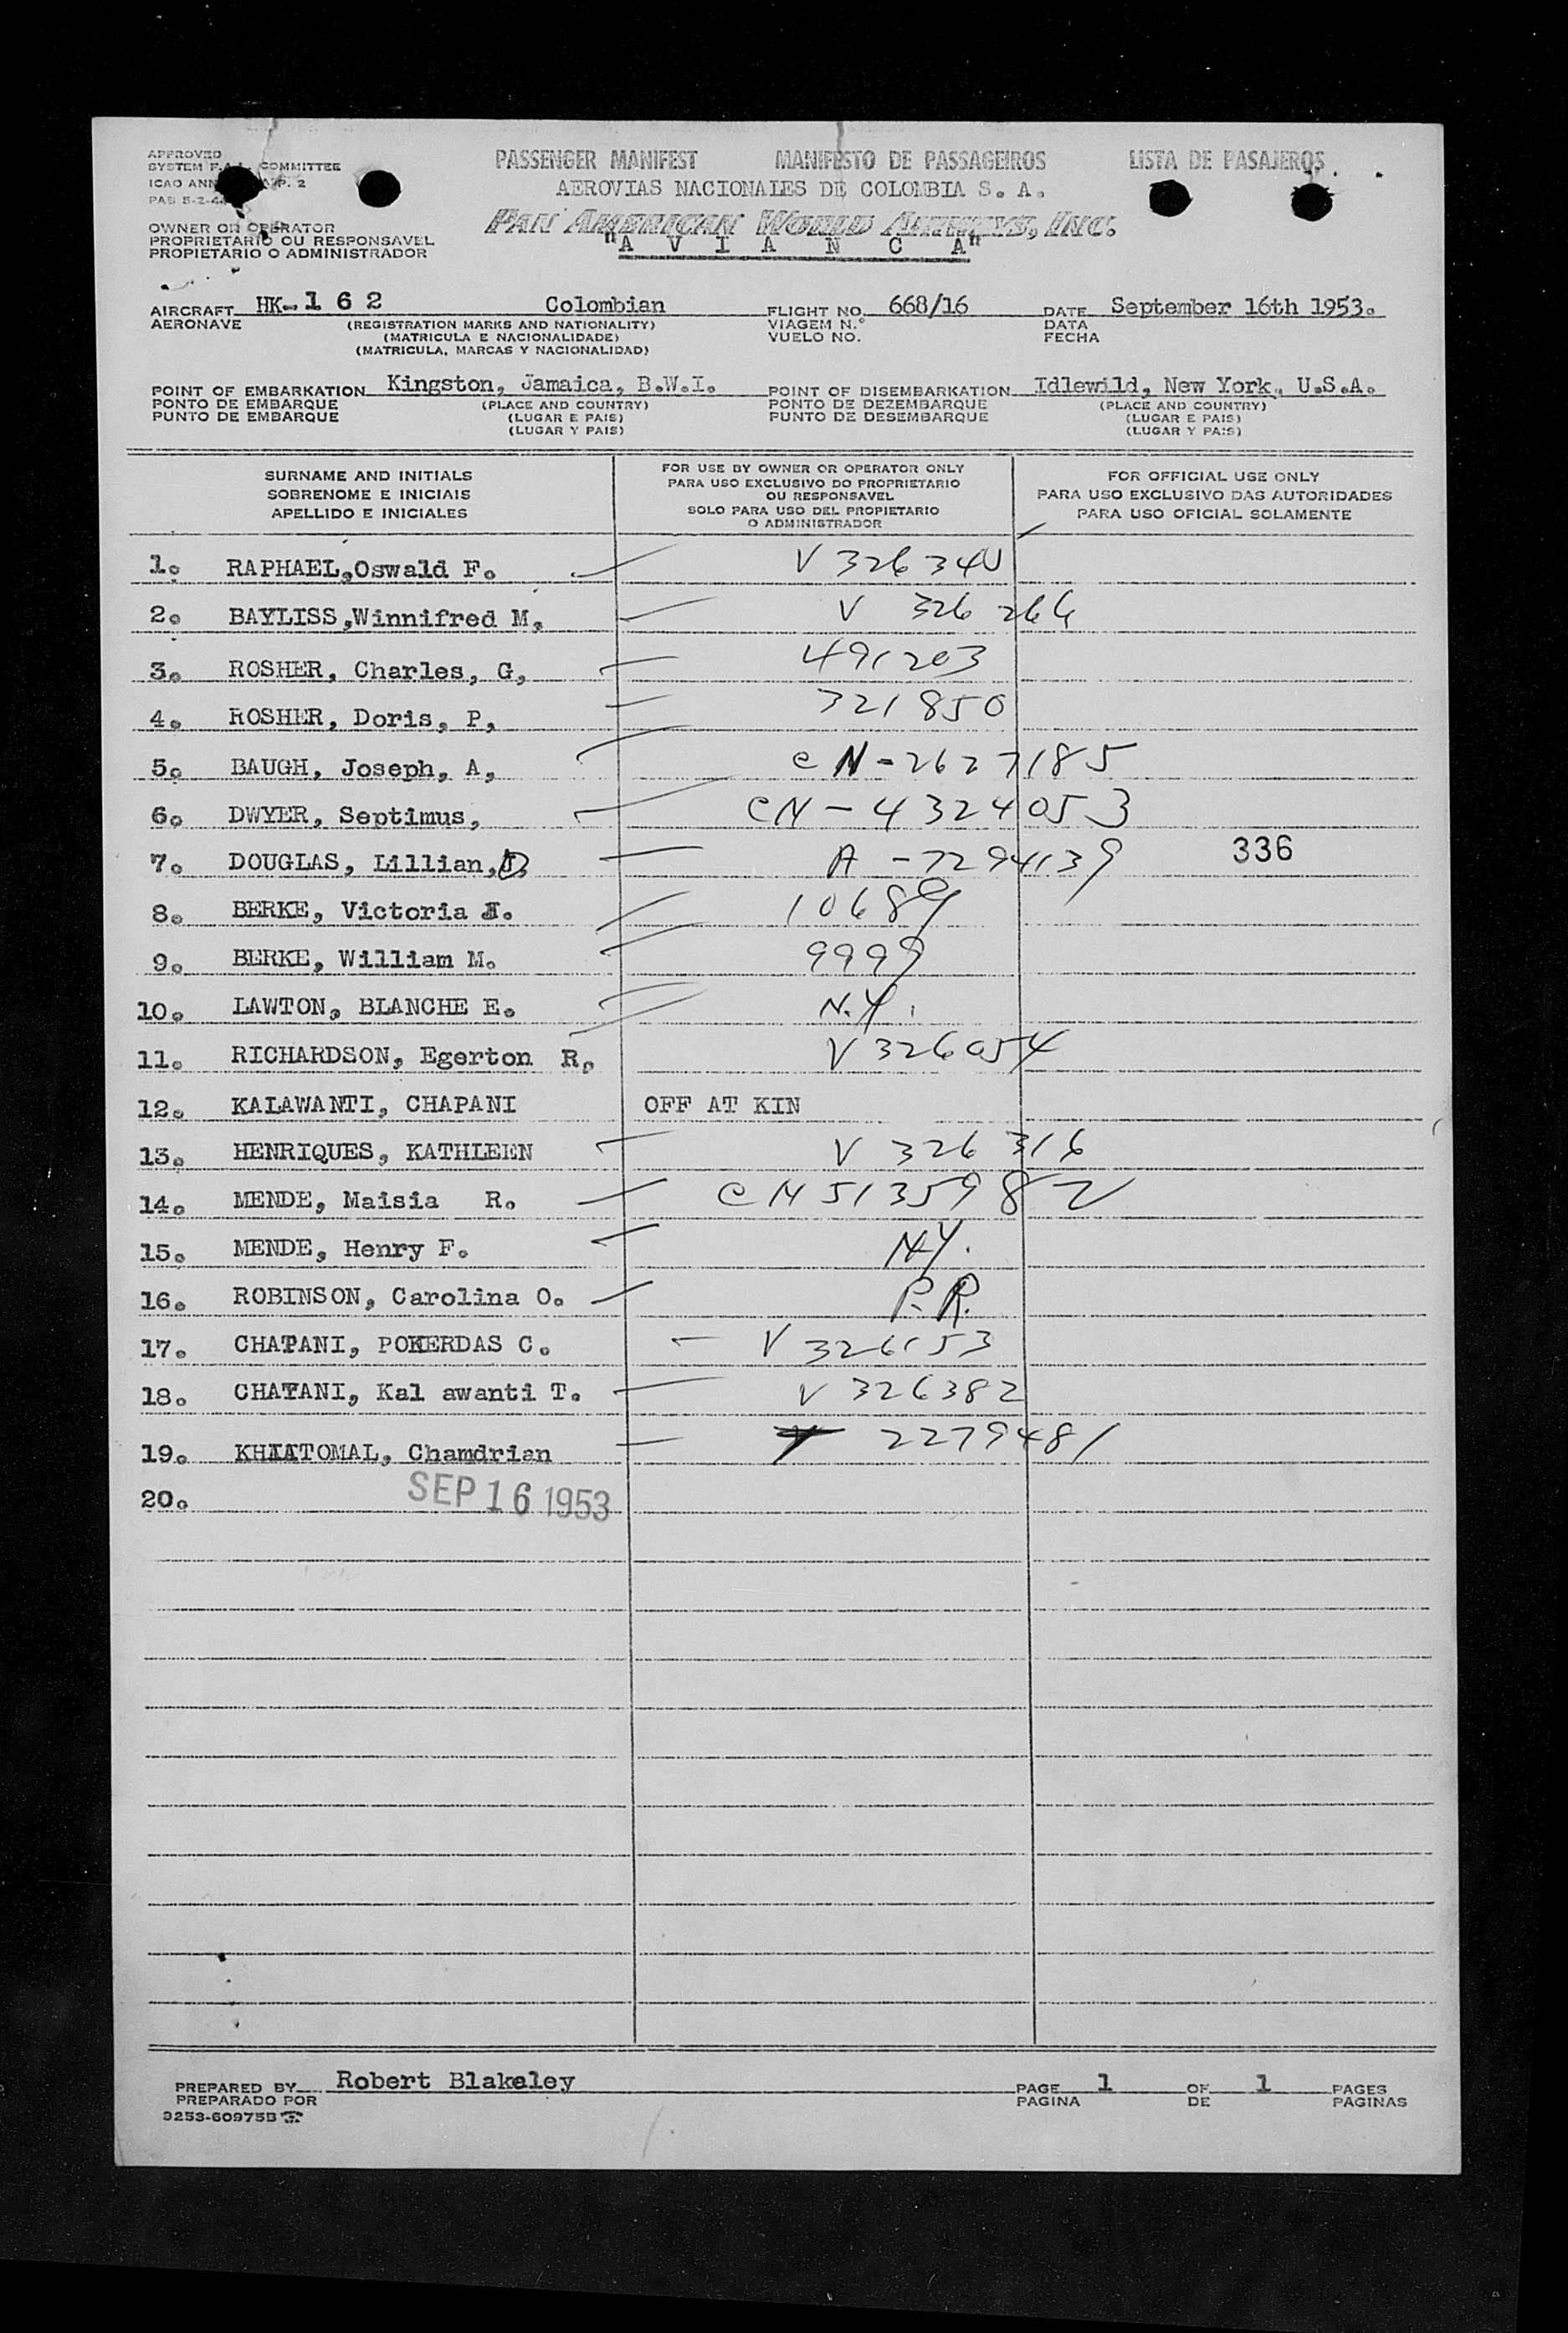 APPROVED
SYSTEM F.A.L. COMMITTEE
ICAO ANN P. 2
PAS 5-2-44
PASSENGER MANIFEST MANIFESTO DE PASSAGEIROS LISTA DE PASAJEROS
AEROVIAS NACIONALES DE COLOMBIA S. A.
PAN AMERICAN WORLD AIRWAYS, INC.
"A V I A N C A"
OWNER OR OPERATOR
PROPRIETARIO OU RESPONSAVEL
PROPIETARIO O ADMINISTRADOR
AIRCRAFT HK-162 Colombian FLIGHT NO. 668/16 DATE September 16th 1953.
AERONAVE (REGISTRATION MARKS AND NATIONALITY) VIAGEM N.° DATA
(MATRICULA E NACIONALIDADE) VUELO NO. FECHA
(MATRICULA, MARCAS Y NACIONALIDAD)
POINT OF EMBARKATION Kingston, Jamaica, B.W.I. POINT OF DISEMBARKATION Idlewild, New York, U.S.A.
PONTO DE EMBARQUE (PLACE AND COUNTRY) PONTO DE DEZEMBARQUE (PLACE AND COUNTRY)
PUNTO DE EMBARQUE (LUGAR E PAIS) PUNTO DE DESEMBARQUE (LUGAR E PAIS)
(LUGAR Y PAIS) (LUGAR Y PAIS)
SURNAME AND INITIALS
SOBRENOME E INICIAIS
APELLIDO E INICIALES
FOR USE BY OWNER OR OPERATOR ONLY
PARA USO EXCLUSIVO DO PROPRIETARIO
OU RESPONSAVEL
SOLO PARA USO DEL PROPIETARIO
O ADMINISTRADOR
FOR OFFICIAL USE ONLY
PARA USO EXCLUSIVO DAS AUTORIDADES
PARA USO OFICIAL SOLAMENTE
1. RAPHAEL,Oswald F. V 326340
2. BAYLISS,Winnifred M, V 326 266
3. ROSHER, Charles, G, 491203
4. ROSHER, Doris, P, 321850
5. BAUGH, Joseph, A, CN-2627185
6. DWYER, Septimus, CN-4324053
7. DOUGLAS, Lillian, D A-7294139 336
8. BERKE, Victoria I. 10689
9. BERKE, William M. 9999
10. LAWTON, BLANCHE E. N.Y.
11. RICHARDSON, Egerton R, V326054
12. KALAWANTI, CHAPANI OFF AT KIN
13. HENRIQUES, KATHLEEN V 326 316
14. MENDE, Maisia R. CN 5135982
15. MENDE, Henry F. NY.
16. ROBINSON, Carolina O. P.R.
17. CHATANI, POKERDAS C. V 326153
18. CHATANI, Kal awanti T. V 326382
19. KHIATOMAL, Chamdrian 2279481
20. SEP 16 1953
PREPARED BY Robert Blakeley PAGE 1 OF 1 PAGES
PREPARADO POR PAGINA DE PAGINAS
3253-60975B